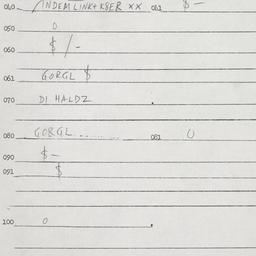 040 INDEM LINK+K8ER XX 041 $ -
050 0
060 $ / -
061 GORGL $
070 DI HALDZ .
080 GORGL ....... 081 U
090 $ -
091 $
100 0 .